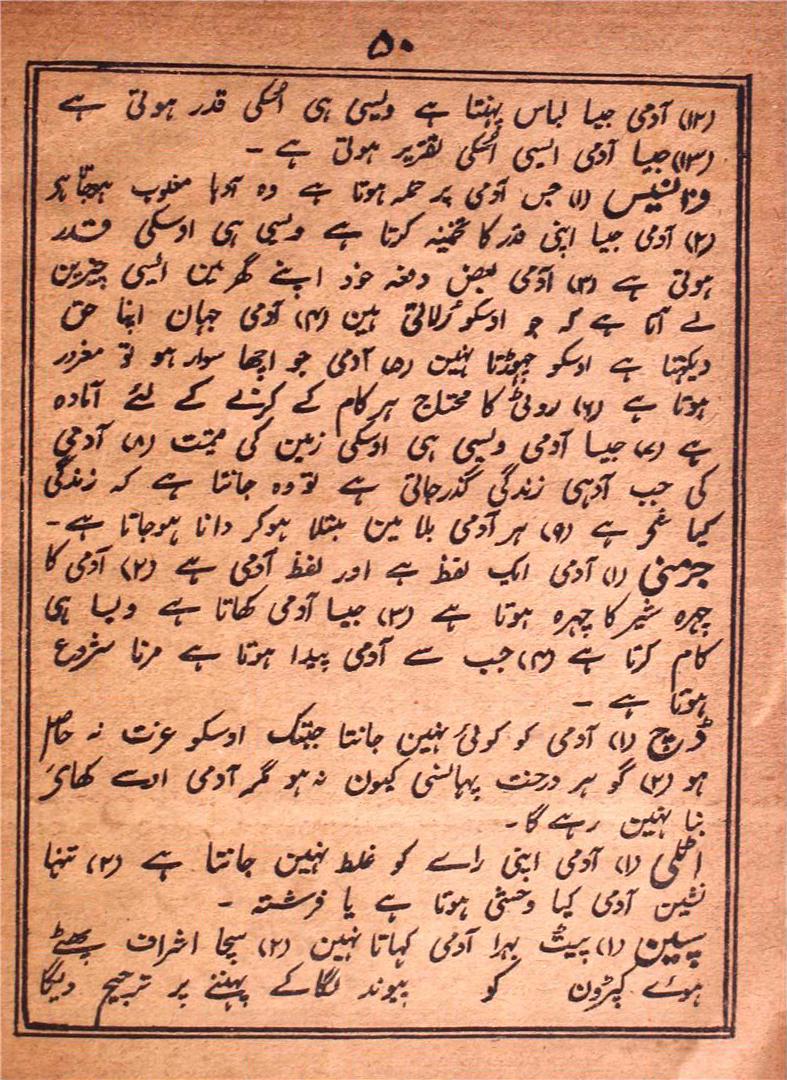 ۵۰
(۱۲) آدمی جیسا لباس پہنتا ہے ویسی ہی اُسکی قدر ہوتی ہے
(۱۳) جیسا آدمی ایسی اُسکی تقریر ہوتی ہے ۔
(۱) جس آدمی پر حملہ ہوتا ہے وہ آدہا مغلوب ہوجاتا ہے
(۲) آدمی جیسا اپنی قدر کا تخمینہ کرتا ہے ویسی ہی اوسکی قدر
ہوتی ہے (۳) آدمی بعض دفعہ خود اپنے گھر مین ایسی چیزین
لے آتا ہے کہ جو اوسکو رُلاتی ہین (۴) آدمی جہان اپنا حق
دیکہتا ہے اوسکو چہوڑتا نہین (۵) آدمی جو اچھا سوار ہو تو مغرور
ہوتا ہے (۶) روٹی کا محتاج ہر کام کے کرنے کے لئے آمادہ
ہے (۷) جیسا آدمی ویسی ہی اوسکی زمین کی قیمت (۸) آدمی
کی جب آدہی زندگی گذرجاتی ہے تو وہ جانتا ہے کہ زندگی
کیا ہے (۹) ہر آدمی بلا مین مبتلا ہوکر دانا ہوجاتا ہے ۔
جرمنی (۱) آدمی ایک لفظ ہے اور لفظ آدمی ہے (۲) آدمی کا
چہرہ شیر کا چہرہ ہوتا ہے (۳) جیسا آدمی کھاتا ہے ویسا ہی
کام کرتا ہے (۴) جب سے آدمی پیدا ہوتا ہے مرنا شروع
ہوتا ہے ۔
ڈچ (۱) آدمی کو کوئی نہین جانتا جبتک اوسکو عزت نہ حاصل
ہو (۲) گو ہر درخت پہانسی کیون نہ ہو مگر آدمی اسے کھائے
بنا نہین رہے گا ۔
اٹلی (۱) آدمی اپنی راے کو غلط نہین جانتا ہے (۲) تنہا
نشین آدمی کیا وحشی ہوتا ہے یا فرشتہ ۔
سپین (۱) پیٹ بہرا آدمی کہاتا نہین (۲) سچا اشراف پھٹے
ہوے کپڑون کو پیوند لگاکے پہننے پر ترجیح دیگا